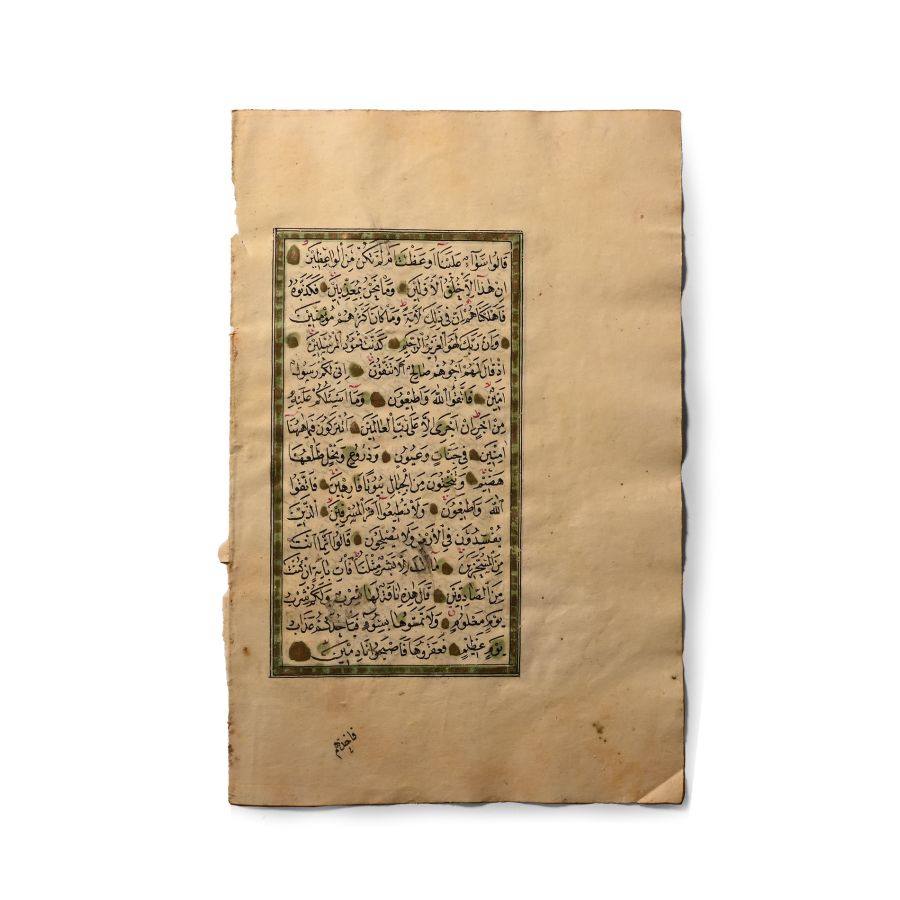 قَالُوا سَوَآءٌ عَلَيْنَآ اَوَعَظْتَ اَمْ لَمْ تَكُنْ مِنَ الْوَاعِظِينَ
اِنْ هٰذَآ اِلَّا خُلُقُ الْاَوَّلِينَ وَمَا نَحْنُ بِمُعَذَّبِينَ فَكَذَّبُوهُ
فَاَهْلَكْنَاهُمْ اِنَّ فِى ذٰلِكَ لَاٰيَةً وَمَا كَانَ اَكْثَرُهُمْ مُؤْمِنِينَ
وَاِنَّ رَبَّكَ لَهُوَ الْعَزِيزُ الرَّحِيمُ كَذَّبَتْ ثَمُودُ الْمُرْسَلِينَ
اِذْ قَالَ لَهُمْ اَخُوهُمْ صَالِحٌ اَلَا تَتَّقُونَ اِنِّى لَكُمْ رَسُولٌ
اَمِينٌ فَاتَّقُوا اللّٰهَ وَاَطِيعُونِ وَمَآ اَسْئَلُكُمْ عَلَيْهِ
مِنْ اَجْرٍ اِنْ اَجْرِىَ اِلَّا عَلٰى رَبِّ الْعَالَمِينَ اَتُتْرَكُونَ فِى مَا هٰهُنَا
اٰمِنِينَ فِى جَنَّاتٍ وَعُيُونٍ وَزُرُوعٍ وَنَخْلٍ طَلْعُهَا
هَضِيمٌ وَتَنْحِتُونَ مِنَ الْجِبَالِ بُيُوتًا فَارِهِينَ فَاتَّقُوا
اللّٰهَ وَاَطِيعُونِ وَلَا تُطِيعُوا اَمْرَ الْمُسْرِفِينَ اَلَّذِينَ
يُفْسِدُونَ فِى الْاَرْضِ وَلَا يُصْلِحُونَ قَالُوا اِنَّمَا اَنْتَ
مِنَ الْمُسَحَّرِينَ مَا اَنْتَ اِلَّا بَشَرٌ مِثْلُنَا فَاْتِ بِاٰيَةٍ اِنْ كُنْتَ
مِنَ الصَّادِقِينَ قَالَ هٰذِهِ نَاقَةٌ لَهَا شِرْبٌ وَلَكُمْ شِرْبُ
يَوْمٍ مَعْلُومٍ وَلَا تَمَسُّوهَا بِسُوٓءٍ فَيَاْخُذَكُمْ عَذَابُ
يَوْمٍ عَظِيمٍ فَعَقَرُوهَا فَاَصْبَحُوا نَادِمِينَ
فاخذهم